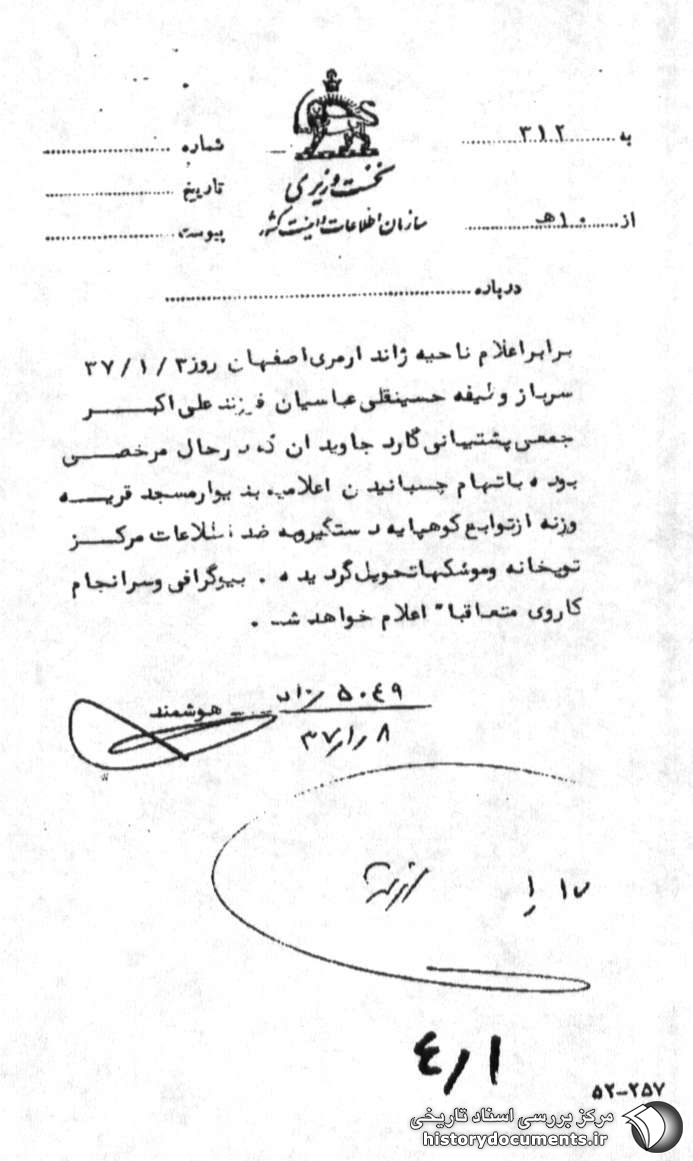 به ۳۱۲
شماره
نخست وزیری
تاریخ
سازمان اطلاعات و امنیت کشور
از ۱۰هـ
پیوست
درباره
برابر اعلام ناحیه ژاندارمری اصفهان روز ۳ / ۱ / ۳۷
سرباز وظیفه حسینقلی عباسیان فرزند علی اکبر
جمعی پشتیبانی گارد جاویدان که در حال مرخصی
بوده باتهام چسبانیدن اعلامیه بدیوار مسجد قریه
وزنه از توابع کوهپایه دستگیر و به ضد اطلاعات مرکز
توپخانه و موشکها تحویل گردیده . بیوگرافی و سرانجام
کار وی متعاقبا" اعلام خواهد شد .
۵۰۴۹
هوشمند
۳۷/۱/۸
۴/۱
۵۲-۲۵۷
مرکز بررسی اسناد تاریخی
historydocuments.ir